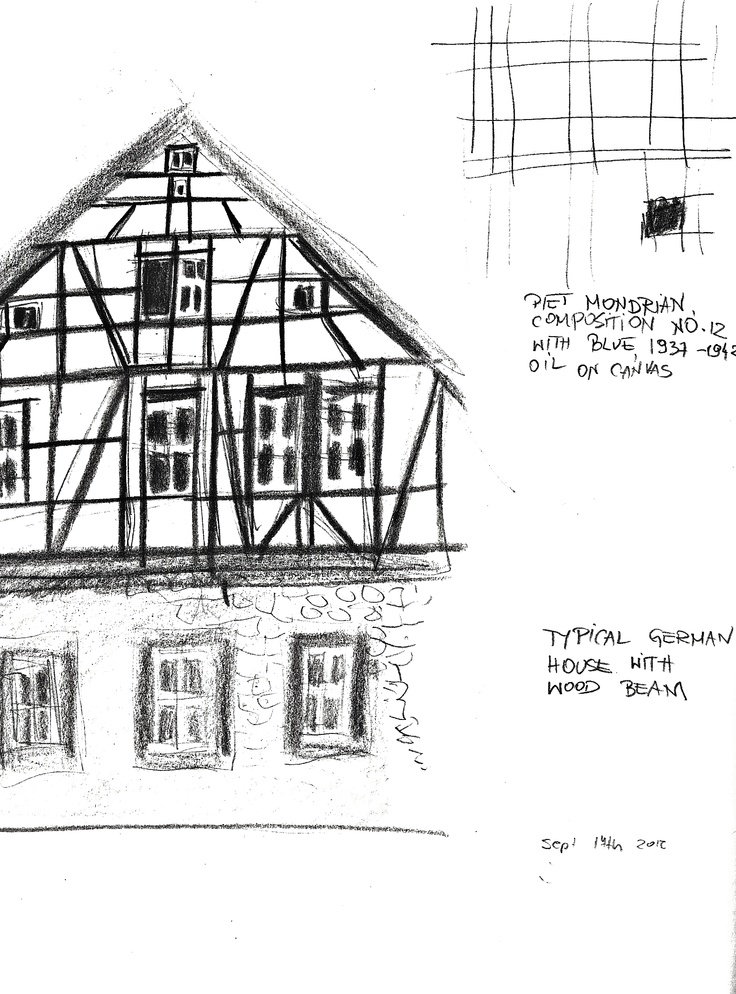 PIET MONDRIAN,
COMPOSITION NO. 12
WITH BLUE, 1937-1942
OIL ON CANVAS
TYPICAL GERMAN
HOUSE WITH
WOOD BEAM
Sept 14th